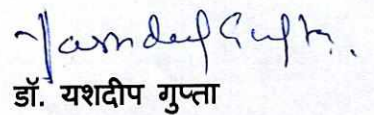 Yashdeep Gupta.
डॉ. यशदीप गुप्ता